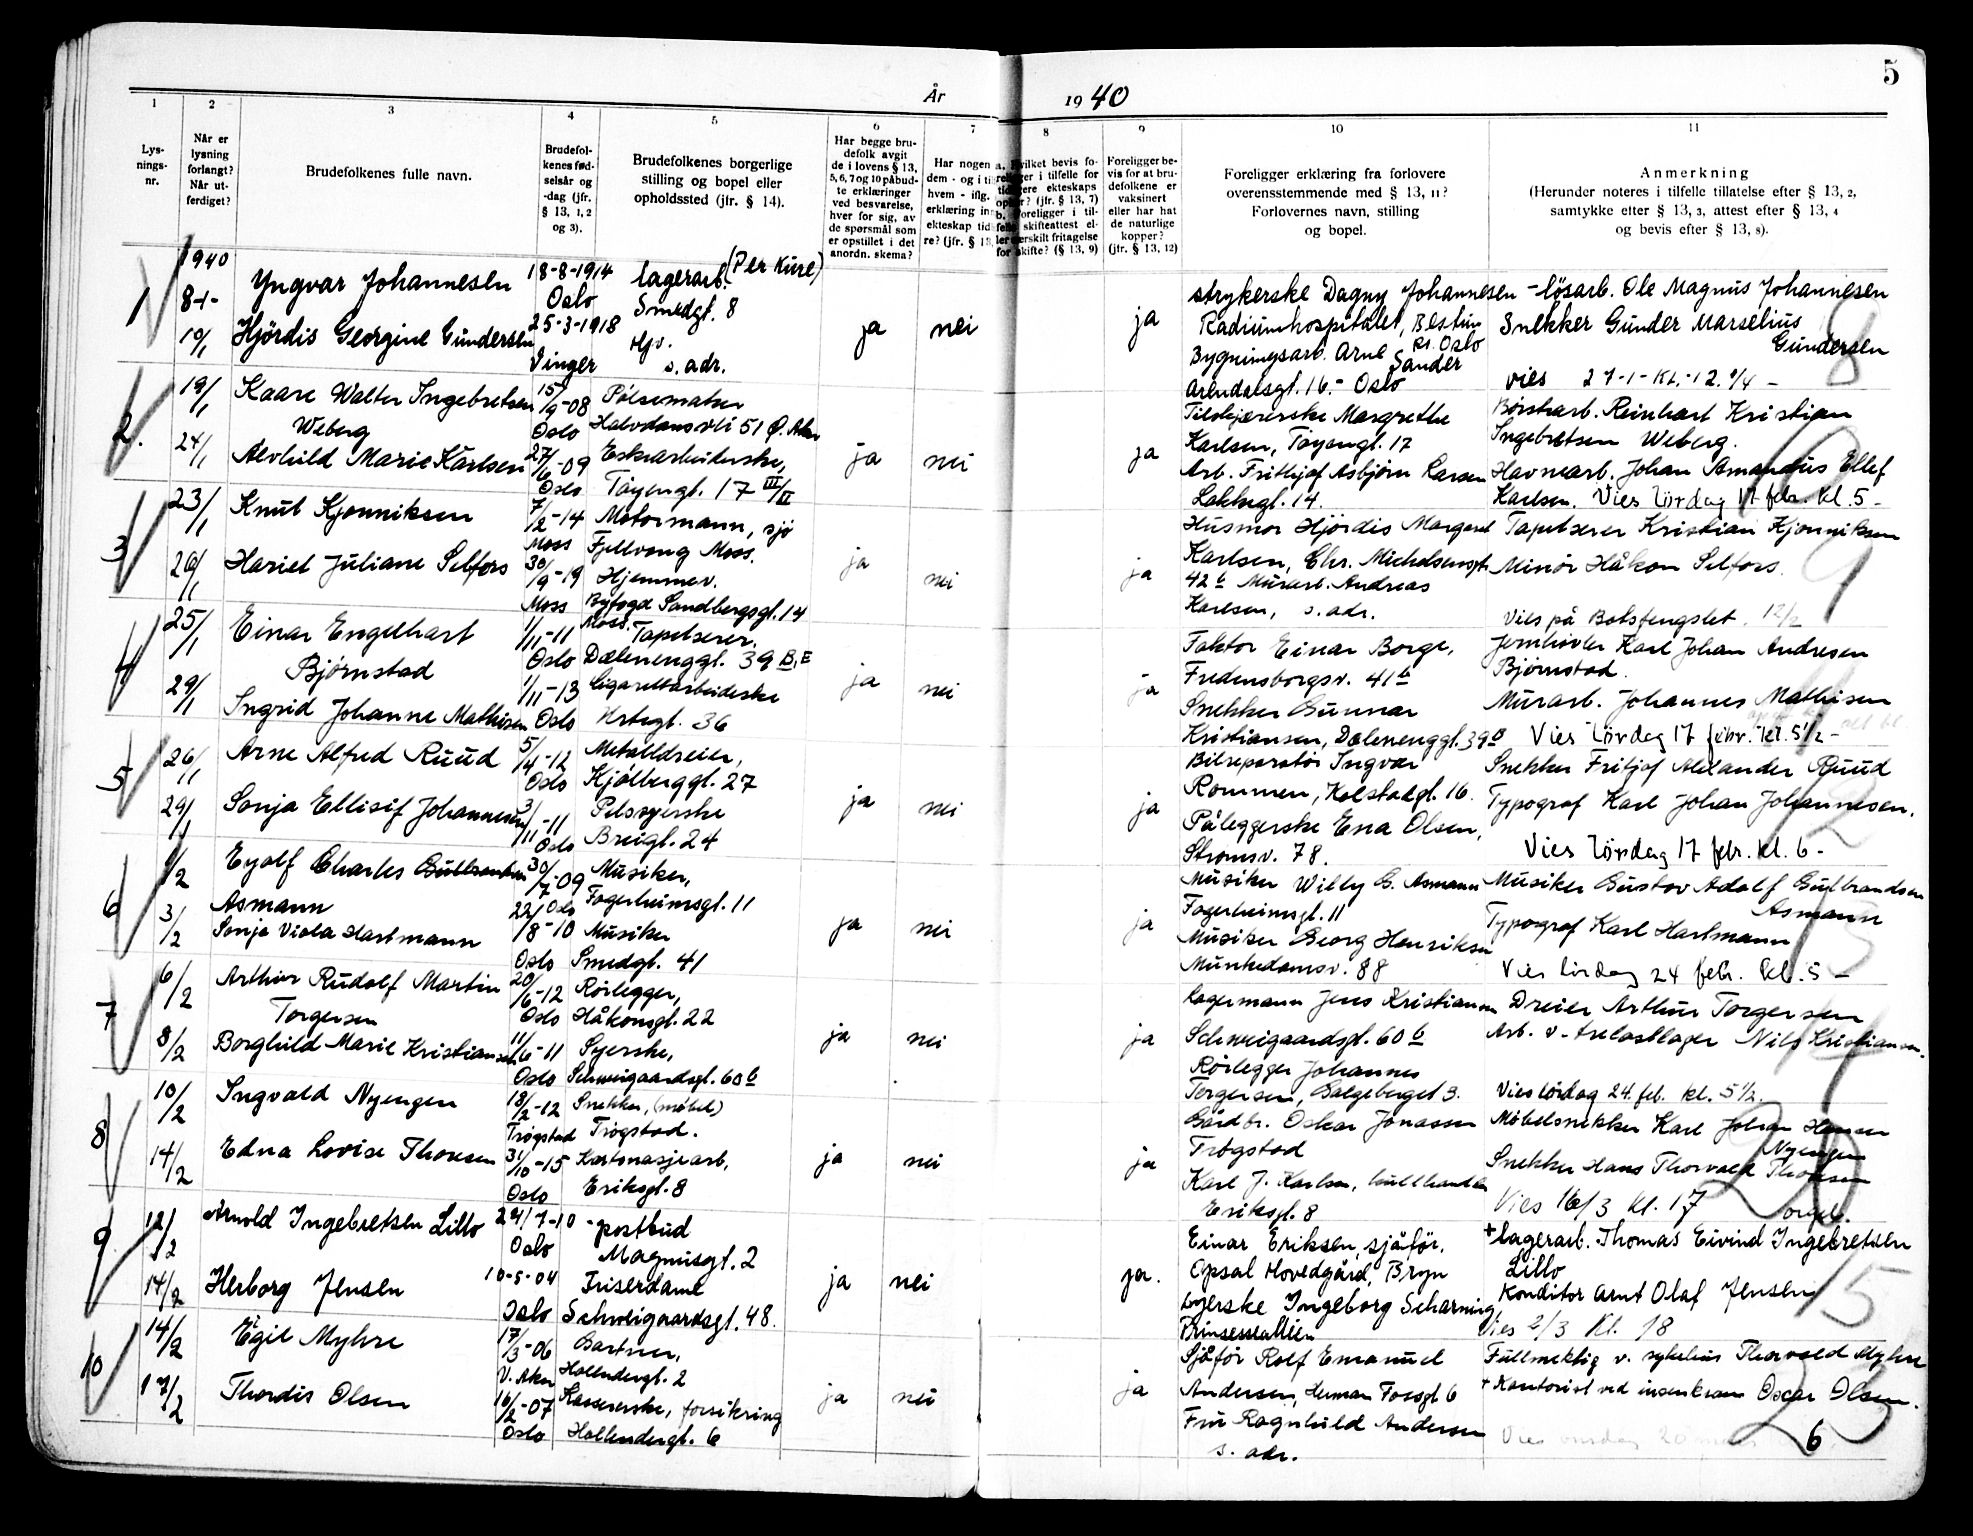 5
År 1940
1 2 3 4 5 6 7 8 9 10 11
Lys-
nings-
nr.
Når er
lysning
forlangt?
Når ut-
ferdiget?
Brudefolkenes fulle navn.
Brudefol-
kenes fød-
selsår og
-dag (jfr.
§ 13, 1, 2
og 3).
Brudefolkenes borgerlige
stilling og bopel eller
opholdssted (jfr. § 14).
Har begge bru-
defolk avgit
de i lovens § 13,
5, 6, 7 og 10 påbud-
te erklæringer
ved besvarelse,
hver for sig, av
de spørsmål som
er opstillet i det
anordn. skema?
Har nogen a
dem - og i ti
hvem - iflg.
erklæring in
ekteskap tid
re? (jfr. § 13,
Foreligger be-
vis for at bru-
defolkene er
vaksinert
eller har hat
de naturlige
kopper?
(jfr. § 13, 12)
Foreligger erklæring fra forlovere
overensstemmende med § 13, 11?
Forlovernes navn, stilling
og bopel.
Anmerkning
(Herunder noteres i tilfelle tillatelse efter § 13, 2,
samtykke efter § 13, 3, attest efter § 13, 4
og bevis efter § 13, 8).
1
1940
8-1-
19/1
Yngvar Johannesen
Hjördis Georgine Gundersen
18-8-1914
Oslo
25-3-1918
Vinger
lagerarb. (Per Kure)
Smedgt. 8
Hjv.
s. adr.
ja nei ja
strykerske Dagny Johannesen
Radiumhospitalet, Bestum
pr. Oslo
Bygningsarb. Arne Sander
Arendalsgt. 16.- Oslo
- løsarb. Ole Magnus Johannesen
Snekker Gunder Marselius
Gundersen
vies 27-1-Kl.-12.
2.
19/1
24/1
Kaare Walter Ingebretsen
Weberg
Alvhild Marie Karlsen
15/9-08
Oslo
27/6-09
Oslo
Pölsemaker
Halvdansvei 51 Ø. Aker
Eskearbeiderske,
Töyengt. 17 III/II
ja nei ja
Tilskjærerske Margrethe
Karlsen, Töyengt. 17
Arb. Frithjof Asbjörn Larsen
Lakkegt. 14.
Börstearb. Reinhart Kristian
Ingebretsen Weberg.
Havnearb. Johan Amandus Ellef
Karlsen. Vies lördag 17 febr. kl. 5-
3
23/1
26/1
Knut Kjonniksen
Hariet Juliane Selfors
7/2-14
Moss
30/9-19
Moss
Motormann, sjö
Fjellvang Moss.
Hjemmev.
Byfogd Sandbergsgt. 14
Moss.
ja nei ja
Husmor Hjördis Margaret
Karlsen, Chr. Michelsensgt.
42 b Murarb. Andreas
Karlsen, s. adr.
Tapetserer Kristian Kjonniksen
Minör Håkon Selfors.
Vies på Botsfengslet. 12/2
4
25/1
29/1
Einar Engelhart
Bjørnstad
Ingrid Johanne Mathisen
1/11-11
Oslo
1/11-13
Oslo
Tapetserer,
Dælenenggt. 39 B, E
Cigarettarbeiderske
Urtegt. 36
ja nei ja
Faktor Einar Borge,
Fredensborgsv. 41 b
Snekker Gunnar
Kristiansen, Dælenenggt. 39
Jernhøvler Karl Johan Andresen
Bjørnstad.
Murarb. Johannes Mathisen
Vies lördag 17 febr. kl. 5½-
5
26/1
29/1
Arne Alfred Ruud
Sonja Ellisif Johannesen
5/4-12
Oslo
3/11-11
Oslo
Metalldreier,
Kjölberggt. 27
Pelssyerske
Breigt. 24
ja nei ja
Bilreparatör Ingvar
Rommen, Kolstadgt. 16.
Påleggerske Ena Olsen,
Strømsv. 78.
Snekker Fritjof Alexander Ruud
Typograf Karl Johan Johannesen.
Vies lördag 17 febr. kl. 6-
6
1/2
3/2
Eyolf Charles Gulbrandsen
Asmann
Sonja Viola Hartmann
30/7-09
Oslo
22/8-10
Oslo
Musiker,
Fagerheimsgt. 11
Musiker
Smedgt. 41
ja nei ja
Musiker Willy G. Asmann
Fagerheimsgt. 11
Musiker Georg Henriksen
Munkedamsv. 88
Musiker Gustav Adolf Gulbrandsen
Asmann
Typograf Karl Hartmann
Vies lördag 24 febr. kl. 5-
7
6/2
8/2
Arthur Rudolf Martin
Torgersen
Borghild Marie Kristiansen
20/6-12
Oslo
11/6-11
Oslo
Rörlegger,
Håkonsgt. 22
Syerske,
Schweigaardsgt. 60 b
ja nei ja
Lagermann Jens Kristiansen
Schweigaardsgt. 60 b
Rørlegger Johannes
Torgersen, Galgeberget 3.
Dreier Arthur Torgersen
Arb. v. trelastlager Nils Kristiansen.
Vies lördag 24. feb. kl. 5½.
8
10/2
14/2
Ingvald Nyengen
Edna Lovise Thoresen
18/2-12
Trøgstad
31/10-15
Oslo
Snekker, (møbel)
Trögstad.
Kartonasjearb,
Eriksgt. 8
ja nei ja
Gårdbr. Oskar Jonassen
Trögstad
Karl J. Karlsen, kullhandler
Eriksgt. 8
Møbelsnekker Karl Johan Hansen
Nyengen
Snekker Hans Thorvald Thoresen
Vies 16/3 kl. 17 orgel.
9
12/2
14/2
Arnold Ingebretsen Lillo
Herborg Jensen
24/7-10
Oslo
10-5-04
Oslo
- postbud
Magnusgt. 2
Friserdame
Schweigaardsgt. 48.
ja nei ja.
Einar Eriksen, sjåför.
Opsal Hovedgård, Bryn
syerske Ingeborg Scharning
Prinsessealléen
+ lagerarb. Thomas Eivind Ingebretsen
Lillo
Konditor Arnt Olaf Jensen
Vies 2/3 Kl. 18
10
14/2
17/2
Egil Myhre
Thordis Olsen
17/3-06
V. Aker
16/2-07
Oslo
Gartner,
Hollendergt. 2
Kassererske, forsikring
Hollendergt. 6
ja nei ja
Sjåför Rolf Emanuel
Andersen, Herman Fossgt 6
Fru Ragnhild Andersen
s. adr.
Fullmektig v. sykehus Thorvald Myhre
+ Kontorist ved innenkrav Oscar Olsen.
Vies onsdag 20 mars 6